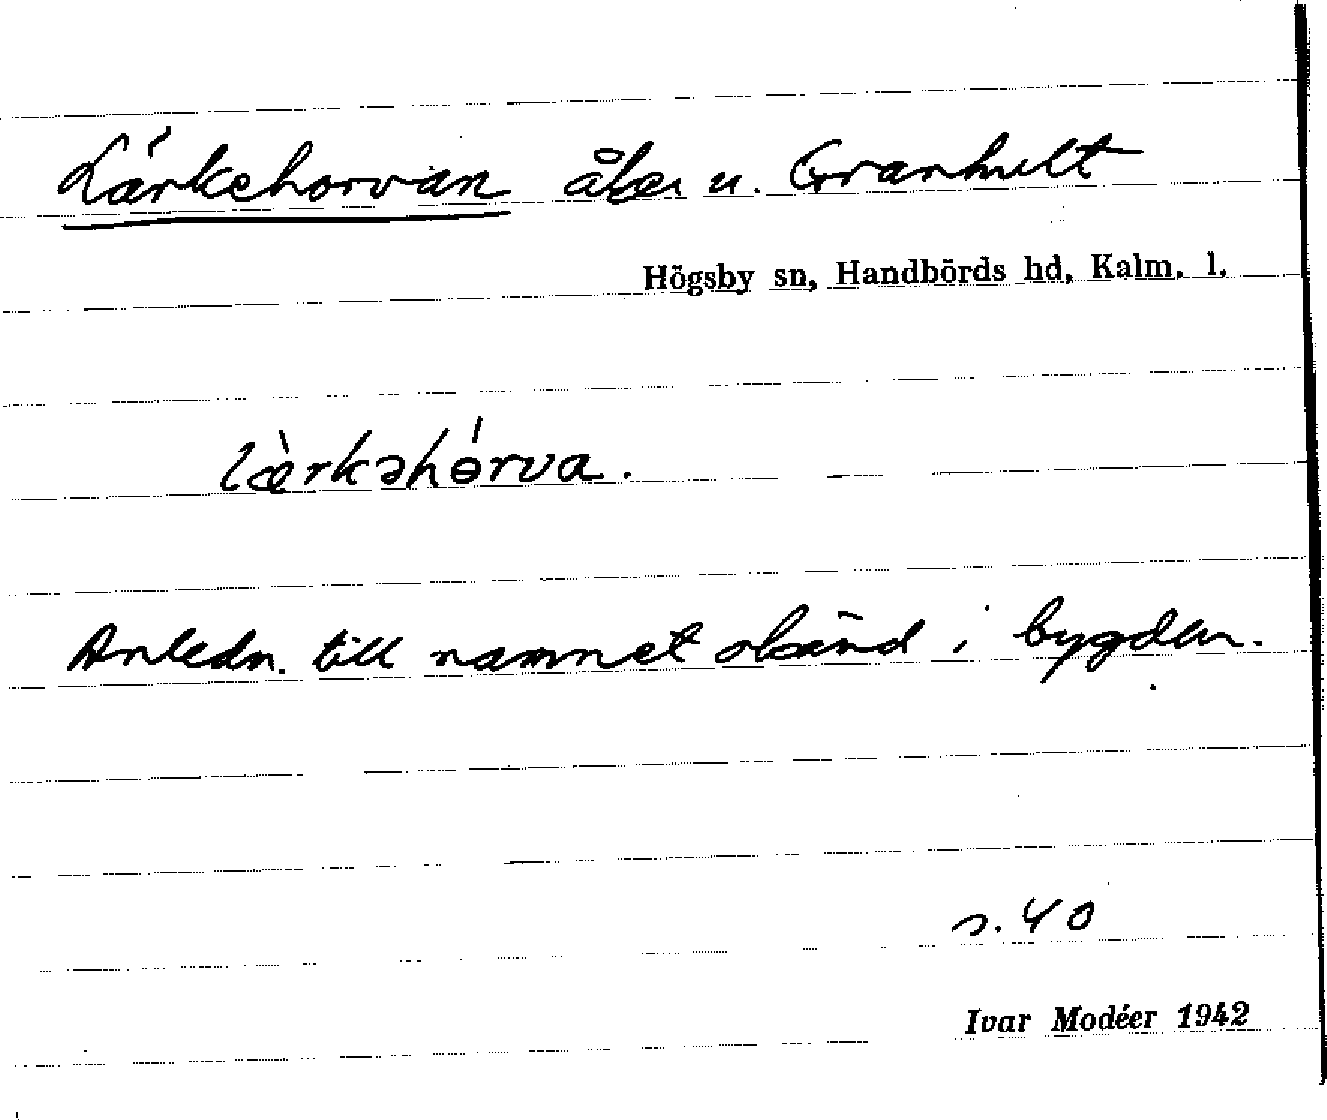 Lärkehorvan åker u. Granhult
Högsby sn, Handbörds hd, Kalm. l.
lærkəhɵrva.
Anledn. till namnet okänd i bygden.
s. 40
Ivar Modéer 1942